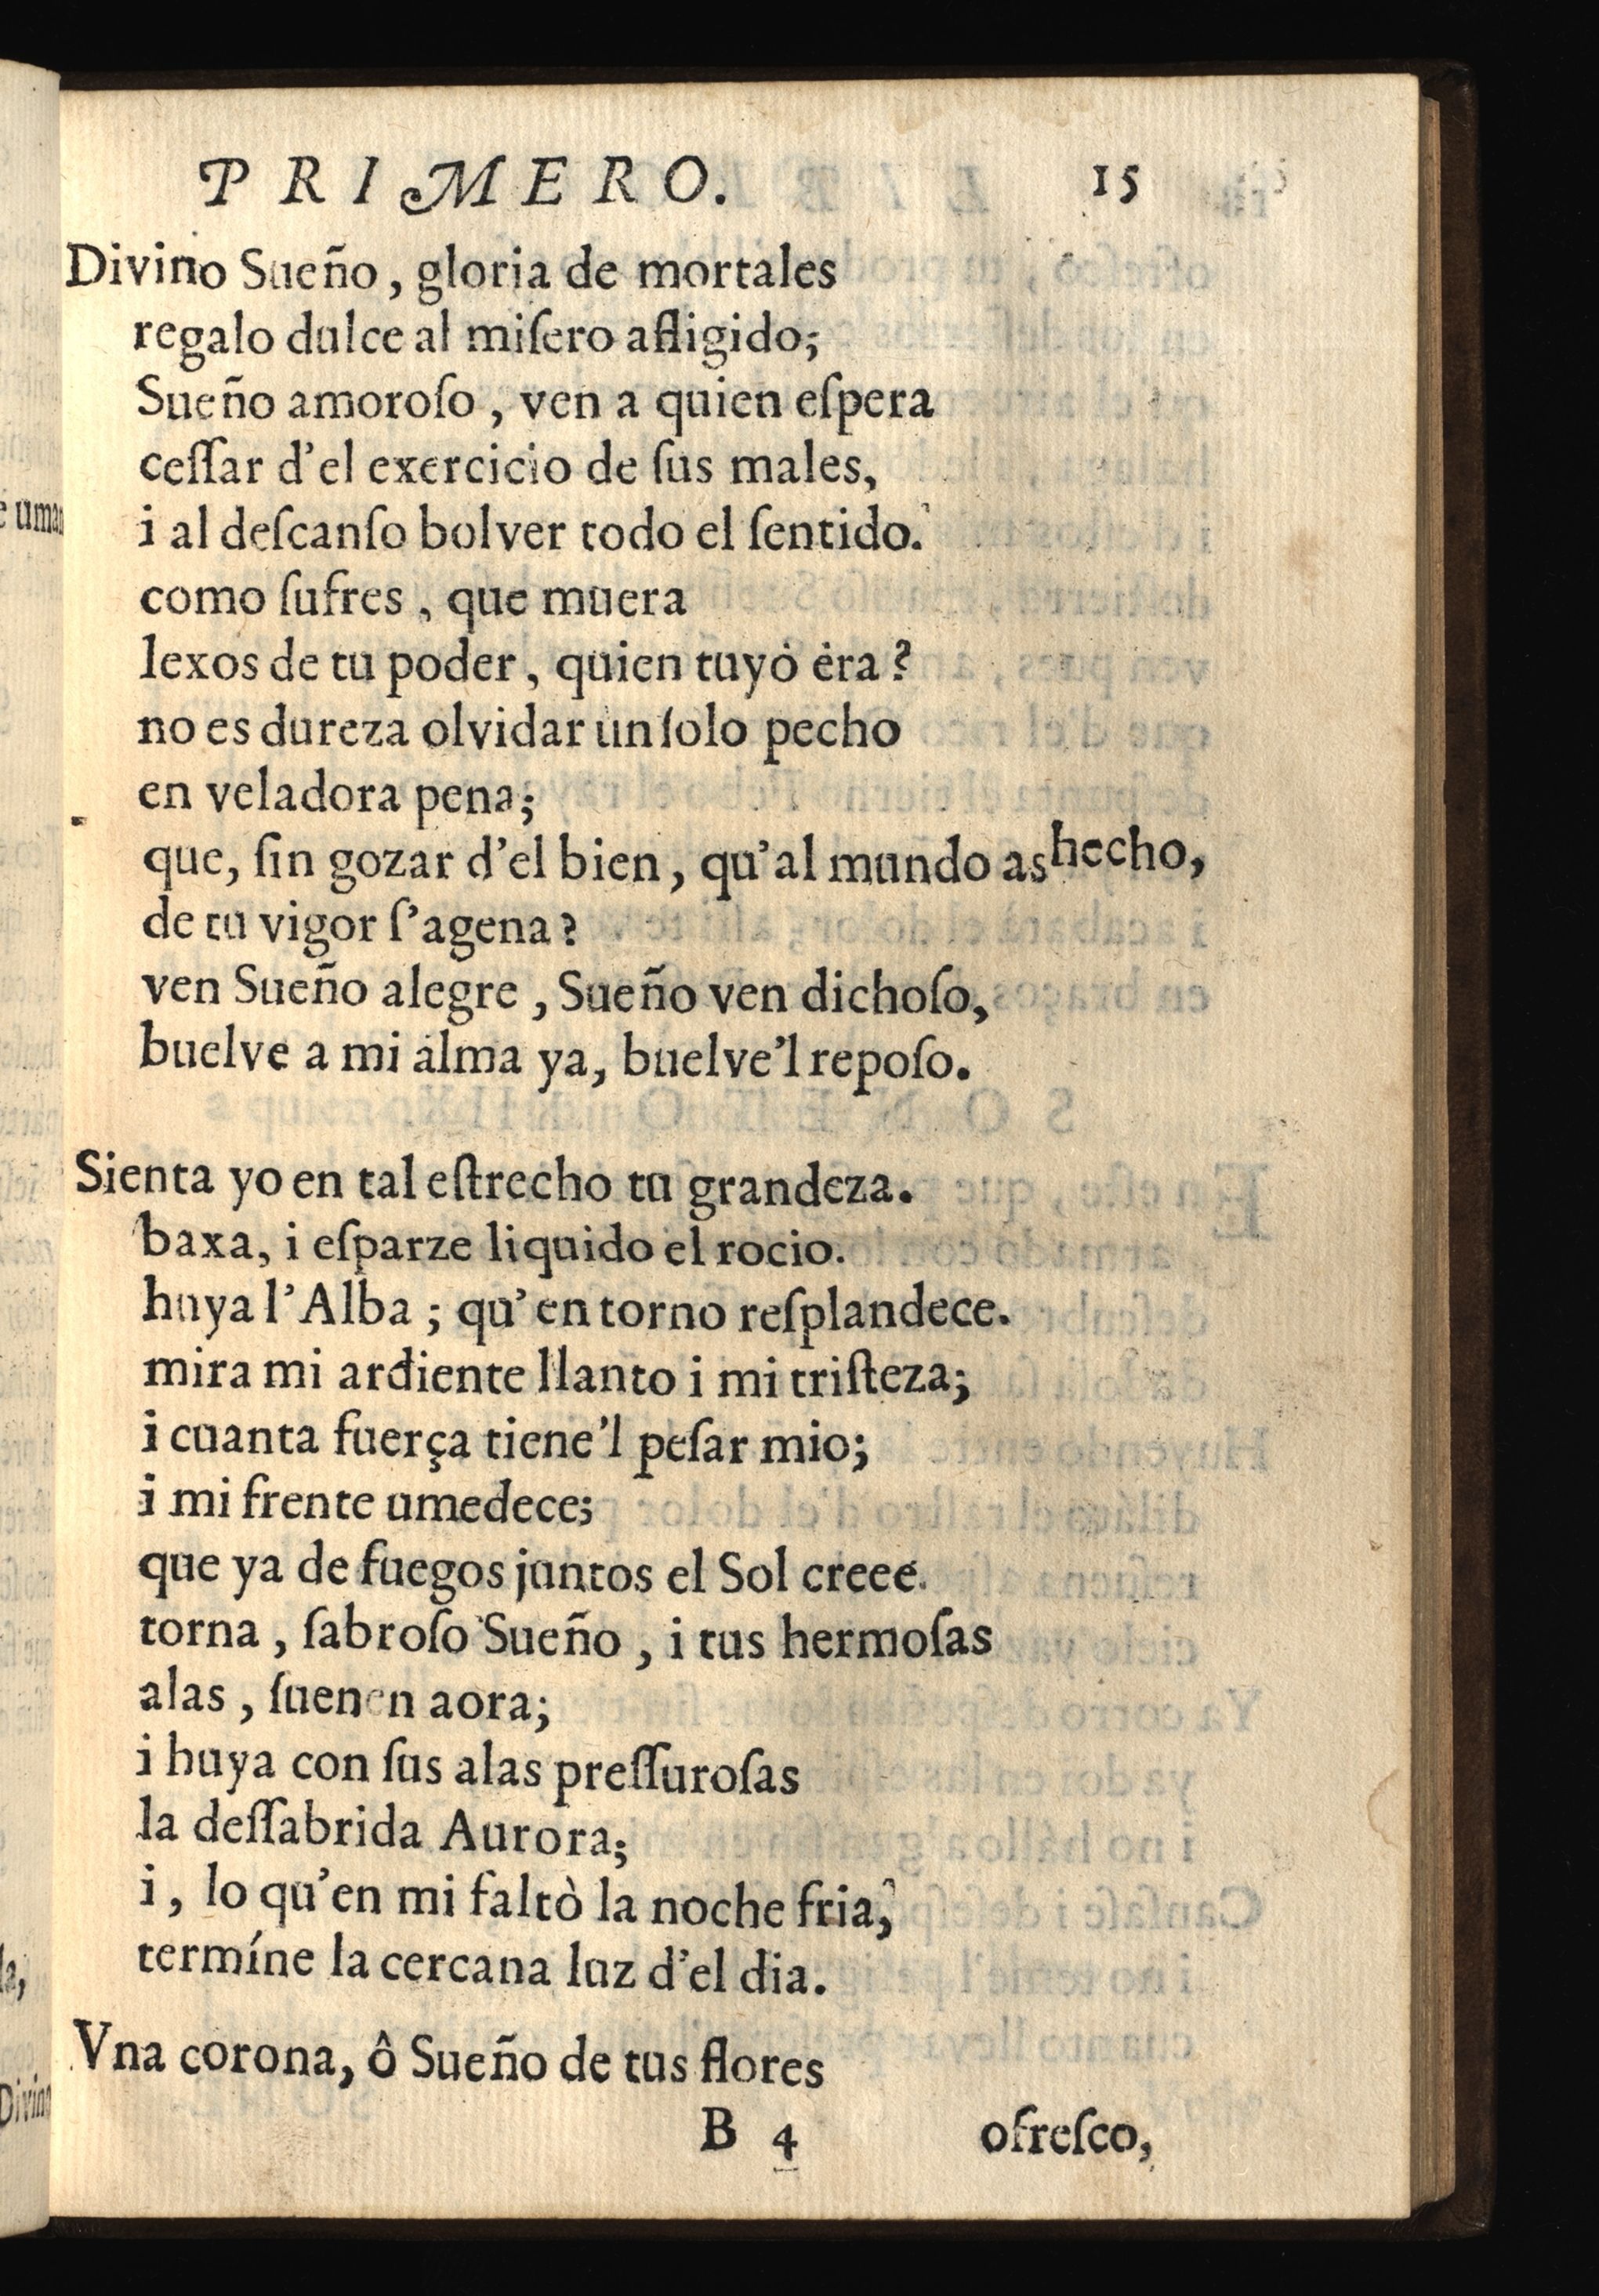 PRIMERO. 15
Divino Sueño, gloria de mortales
regalo dulce al miſero afligido;
Sueño amoroſo, ven a quien eſpera
ceſſar d'el exercicio de ſus males,
i al deſcanſo bolver todo el ſentido.
como ſufres, que muera
lexos de tu poder, quien tuyo era?
no es dureza olvidar un ſolo pecho
en veladora pena;
que, ſin gozar d'el bien, qu'al mundo as hecho,
de tu vigor ſ'agena?
ven Sueño alegre, Sueño ven dichoſo,
buelve a mi alma ya, buelve'l repoſo.
Sienta yo en tal eſtrecho tu grandeza.
baxa, i eſparze liquido el rocio.
huya l'Alba; qu'en torno reſplandece.
mira mi ardiente llanto i mi triſteza;
i cuanta fuerça tiene'l peſar mio;
i mi frente umedece;
que ya de fuegos juntos el Sol creee.
torna, ſabroſo Sueño, i tus hermoſas
alas, ſuenen aora;
i huya con ſus alas preſſuroſas
la deſſabrida Aurora;
i, lo qu'en mi faltò la noche fria,
termíne la cercana luz d'el dia.
Vna corona, ô Sueño de tus flores
B 4 ofreſco,